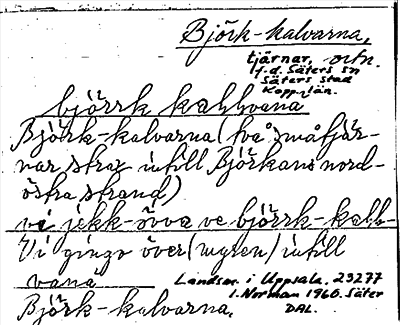 Björk-kalvarna,
tjärnar, ortn.
f.d. Säters sn
Säters stad
Kopp. län.
björrk kallvana
Björk-kalvarna (två småtjär-
nar strax intill Björkans nord-
östra strand)
vi jekk-övva ve björrk-kall-
Vi gingo över (myren) intill
vana
Landsm. i Uppsala. 29277
I. Norman 1960. Säter
DAL.
Björk-kalvarna.